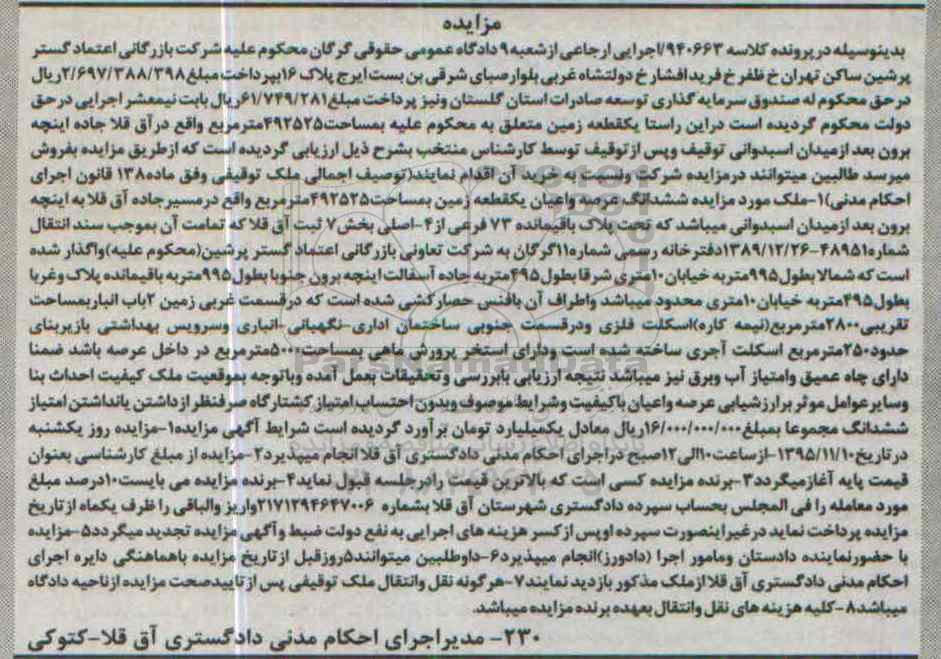 مزایده
بدینوسیله در پرونده کلاسه ۹۴۰۶۶۳/اجرایی ارجاعی از شعبه ۹ دادگاه عمومی حقوقی گرگان محکوم علیه شرکت بازرگانی اعتماد گستر
پرشین ساکن تهران خ ظفر خ فرید افشار خ دولتشاه غربی بلوار صبای شرقی بن بست ایرج پلاک ۱۶ بپرداخت مبلغ ۲/۶۹۷/۳۸۸/۳۹۸ریال
در حق محکوم له صندوق سرمایه گذاری توسعه صادرات استان گلستان ونیز پرداخت مبلغ ۶۱/۷۴۹/۲۸۱ریال بابت نیمعشر اجرایی در حق
دولت محکوم گردیده است دراین راستا یکقطعه زمین متعلق به محکوم علیه بمساحت۴۹۲۵۲۵مترمربع واقع درآق قلا جاده اینچه
برون بعد ازمیدان اسبدوانی توقیف وپس ازتوقیف توسط کارشناس منتخب بشرح ذیل ارزیابی گردیده است که ازطریق مزایده بفروش
میرسد طالبین میتوانند درمزایده شرکت ونسبت به خرید آن اقدام نمایند(توصیف اجمالی ملک توقیفی وفق ماده۱۳۸ قانون اجرای
احکام مدنی)۱-ملک مورد مزایده ششدانگ عرصه واعیان یکقطعه زمین بمساحت۴۹۲۵۲۵مترمربع واقع درمسیرجاده آق قلا به اینچه
برون بعد ازمیدان اسبدوانی میباشد که تحت پلاک باقیمانده ۷۳ فرعی از۴-اصلی بخش۷ ثبت آق قلا که تمامت آن بموجب سند انتقال
شماره۴۸۹۵۱-۱۳۸۹/۱۲/۲۶دفترخانه رسمی شماره۱۱گرگان به شرکت تعاونی بازرگانی اعتماد گستر پرشین(محکوم علیه)واگذار شده
است که شمالا بطول۹۹۵متربه خیابان۱۰متری شرقا بطول۴۹۵متربه جاده آسفالت اینچه برون جنوبا بطول۹۹۵متربه باقیمانده پلاک وغربا
بطول۴۹۵متربه خیابان۱۰متری محدود میباشد واطراف آن بافنس حصارکشی شده است که درقسمت غربی زمین ۲باب انباربمساحت
تقریبی۲۸۰۰مترمربع(نیمه کاره)اسکلت فلزی ودرقسمت جنوبی ساختمان اداری-نگهبانی-انباری وسرویس بهداشتی بازیربنای
حدود۲۵۰مترمربع اسکلت آجری ساخته شده است ودارای استخر پرورش ماهی بمساحت۵۰۰۰مترمربع در داخل عرصه باشد ضمنا
دارای چاه عمیق وامتیاز آب وبرق نیز میباشد نتیجه ارزیابی بابررسی وتحقیقات بعمل آمده وباتوجه بموقعیت ملک کیفیت احداث بنا
وسایرعوامل موثر برارزشیابی عرصه واعیان باکیفیت وشرایط موصوف وبدون احتساب امتیاز کشتارگاه صرفنظر ازداشتن یانداشتن امتیاز
ششدانگ مجموعا بمبلغ۱۶/۰۰۰/۰۰۰/۰۰۰ریال معادل یکمیلیارد تومان برآورد گردیده است شرایط آگهی مزایده۱-مزایده روز یکشنبه
درتاریخ۱۳۹۵/۱۱/۱۰-ازساعت۱۰الی۱۲صبح دراجرای احکام مدنی دادگستری آق قلا انجام میپذیرد۲-مزایده از مبلغ کارشناسی بعنوان
قیمت پایه آغازمیگردد۳-برنده مزایده کسی است که بالاترین قیمت رادرجلسه قبول نماید۴-برنده مزایده می بایست۱۰درصد مبلغ
مورد معامله را فی المجلس بحساب سپرده دادگستری شهرستان آق قلا بشماره ۲۱۷۱۲۹۴۶۴۷۰۰۶واریز والباقی را ظرف یکماه ازتاریخ
مزایده پرداخت نماید درغیراینصورت سپرده اوپس ازکسر هزینه های اجرایی به نفع دولت ضبط وآگهی مزایده تجدید میگردد۵-مزایده
با حضورنماینده دادستان ومامور اجرا (دادورز)انجام میپذیرد۶-داوطلبین میتوانند۵روزقبل ازتاریخ مزایده باهماهنگی دایره اجرای
احکام مدنی دادگستری آق قلاازملک مذکور بازدید نمایند۷-هرگونه نقل وانتقال ملک توقیفی پس ازتاییدصحت مزایده ازناحیه دادگاه
میباشد۸-کلیه هزینه های نقل وانتقال بعهده برنده مزایده میباشد.
۲۳۰- مدیراجرای احکام مدنی دادگستری آق قلا-کتوکی